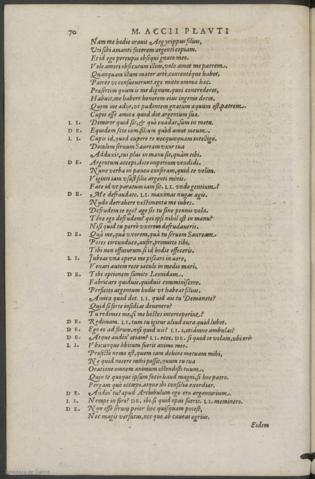 70 M. ACCII PLAVTI
Nam me hodie orauit Argyrippus filius,
Vti sibi amanti facerem argenti copiam.
Et id ego percupio obsequi gnato meo.
Volo amori obsecutum illius, volo amet me patrem.
Quanquam illum mater arcte, contentéque habet,
Patres vt consueuerunt. ego mitto omnia hæc.
Præsertim quum is me dignum, quoi concrederet,
Habuit, me habere honorem eius ingenio decet.
Quom me adiit, vt pudentem gnatum æquum est patrem.
Cupio esse amicæ quod det argentum suæ.
L I. Demiror quid sit, & quò euadat, sum in metu.
D E. Equidem scio iam filius quòd amat meus
L I. Cupis id, quod cupere te nequicquam intellego,
Dotalem seruum Sauream vxor tua
Adduxit, cui plus in manu sit, quàm tibi.
D E. Argentum accepi, dote imperium vendidi.
Nunc verba in pauca conferam, quid te velim.
Viginti iam vsust filio argenti minis.
Face id vt paratum iam sit. L I. vnde gentium?
D E. Me defraudato. L I. maximas nugas agis,
Nudo detrahere vestimenta me iubes.
Defrudem te ego? age sis tu sine pennis vola.
Téne ego defrudem? quoi ipsi nihil est in manu?
Nisi quid tu porrò vxorem defrudaueris.
D E. Quà me, quà vxorem, quà tu seruum Sauream
Potes circunduce, aufer, promitto tibi,
Tibi non offuturum, si id hodie effeceris.
L I. Iubeas vna opera me piscari in aere,
Venari autem rete iaculo in medio mari.
D E. Tibi optionem sumito Leonidam.
Fabricare quiduis, quiduis comminiscere,
Perficito argentum hodie vt habeat filius,
Amicæ quod det. L I. quid ais tu Demænete?
Quid si forte insidias deuenero?
Tu redimes me, si me hostes interceperint?
D E. Redimam. L I. tum tu igitur aliud cura quid lubet.
D E. Ego eo ad forum, nisi quid vis? L I. i, etiámne ambulas?
D E. Atque audin' etiam? L I. ecce. D E. si quid te volam, vbi eris?
L I. Vbicunque libitum fuerit animo meo.
Profectò nemo est, quem iam dehinc metuam mihi,
Ne quid nocere mihi possiet, quum tu mea
Oratione omnem animum ostendisti tuum.
Quin te quoque ipsum facio haud magni, si hoc patro.
Pergam quò occœpi, atque ibi consilia exordiar.
D E. Audin' tu? apud Archibulum ego ero argentarium.
L I. Nempe in foro? D E. ibi, si quid opus fuerit. L I. meminero.
D E. Non esse seruus peior hoc quisquam potest,
Nec magis versutus, nec quo ab caueas ægrius.
Eidem